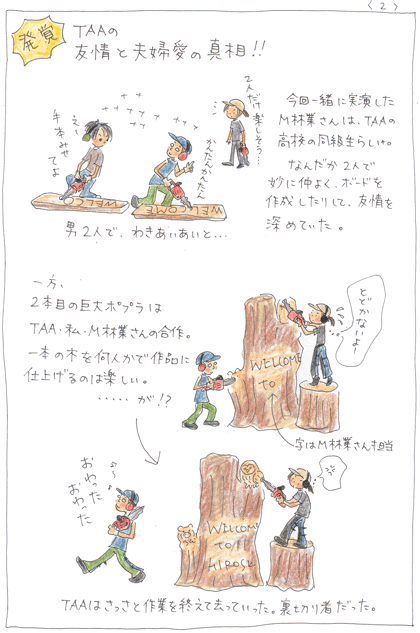 <2>
発覚
TAAの
友情と夫婦愛の真相!!
今回一緒に実演した
M林業さんは、TAAの
高校の同級生らしい。
なんだか2人で
妙に仲よく、ボードを
作成したりして、友情を
深めていた。
2人だけ楽しそう…
かんたんかんたん
え〜
手本みせ
てよ
WELCOME
WELCOME
男2人で、わきあいあいと…
一方、
2本目の巨大ポプラは
TAA・私・M林業さんの合作。
一本の木を何人かで作品に
仕上げるのは楽しい。
・・・・・が!?
とどかないよ〜
WELCOME
TO
字はM林業さん担当
おわった
おわった
WELCOME
TO
HIROSE
TAAはさっさと作業を終えて去っていった。裏切り者だった。